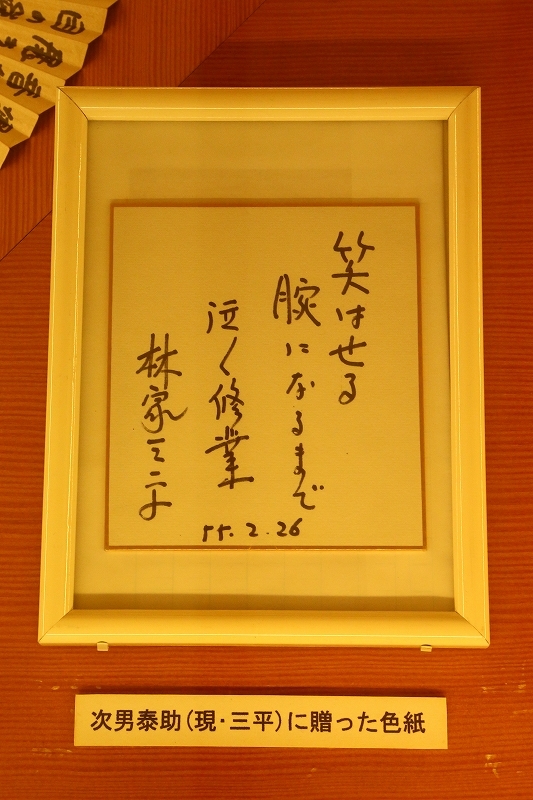 笑はせる
腕になるまで
泣く修業
林家三平
55.2.26
次男泰助(現・三平)に贈った色紙